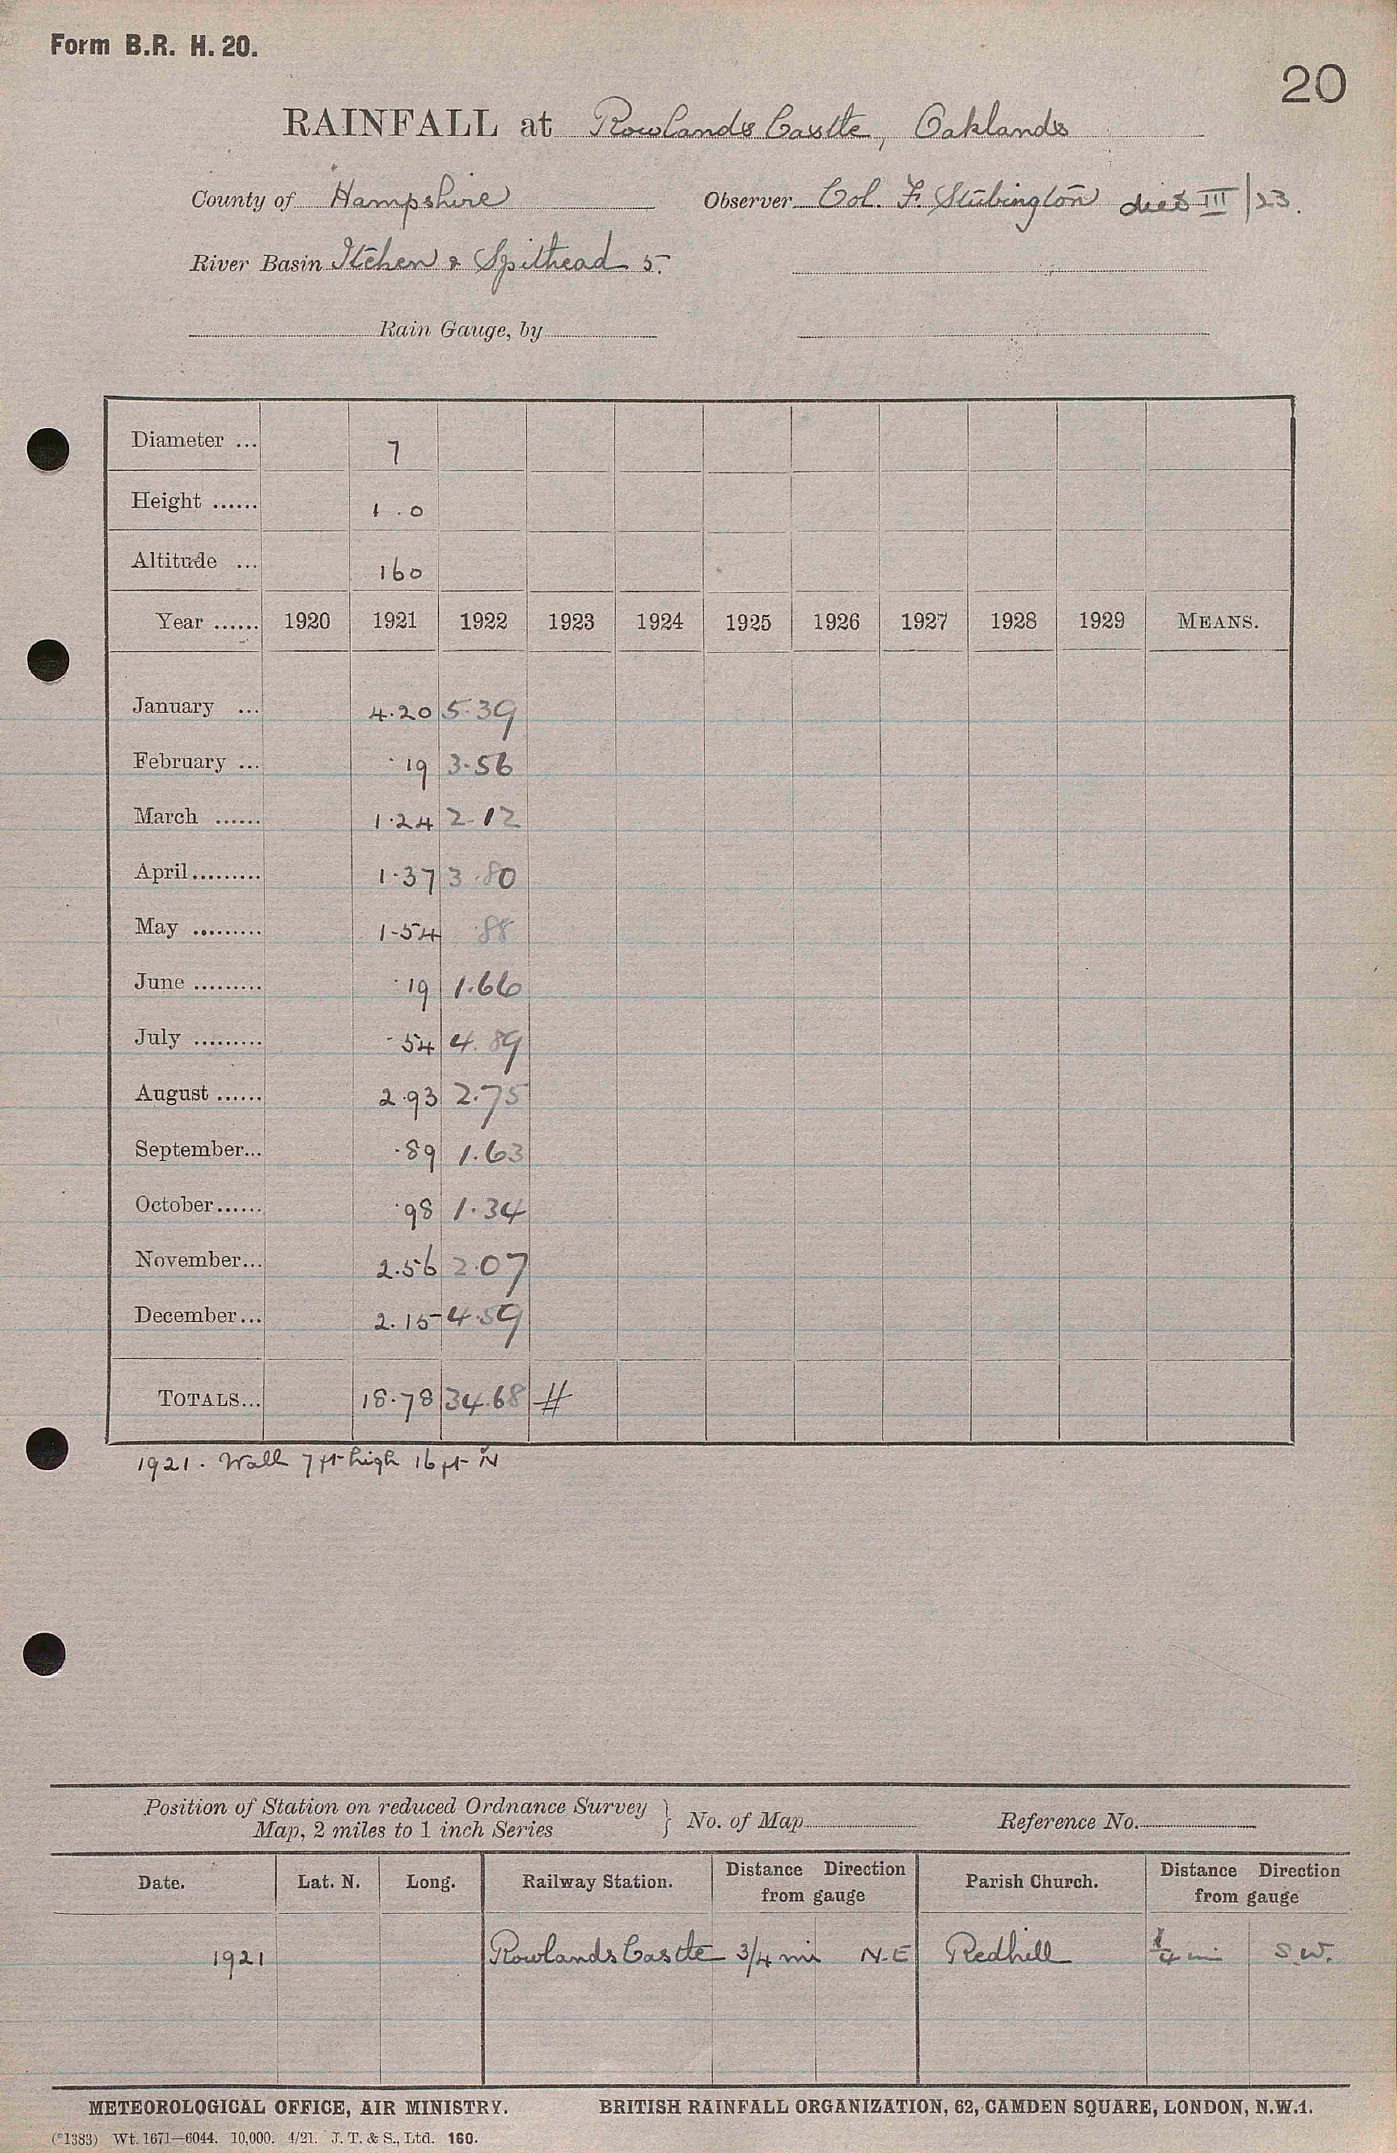 Form B.R. H. 20.
20
RAINFALL at Rowlands Castle, Oaklands
County of Hampshire Observer Col. F. Stubington died III/23.
River Basin Itchen & Spithead 5.
Rain Gauge, by
Diameter ... 7
Height ...... 1.0
Altitude ... 160
Year ...... 1920 1921 1922 1923 1924 1925 1926 1927 1928 1929 MEANS.
January ... 4.20 5.39
February ... .19 3.56
March ...... 1.24 2.12
April......... 1.37 3.80
May ......... 1.54 .88
June ......... .19 1.66
July ......... .54 4.89
August ...... 2.93 2.75
September... .89 1.63
October...... .98 1.34
November... 2.56 2.07
December... 2.15 4.59
TOTALS... 18.78 34.68 #
1921. Wall 7 ft high 16 ft N
Position of Station on reduced Ordnance Survey
Map, 2 miles to 1 inch Series } No. of Map Reference No.
Date. Lat. N. Long. Railway Station. Distance Direction from gauge Parish Church. Distance Direction from gauge
1921 Rowlands Castle 3/4 mi N.E Redhill 1/4 mi S.W.
METEOROLOGICAL OFFICE, AIR MINISTRY. BRITISH RAINFALL ORGANIZATION, 62, CAMDEN SQUARE, LONDON, N.W.1.
(*1383) Wt. 1671—6044. 10,000. 4/21. J. T. & S., Ltd. 160.